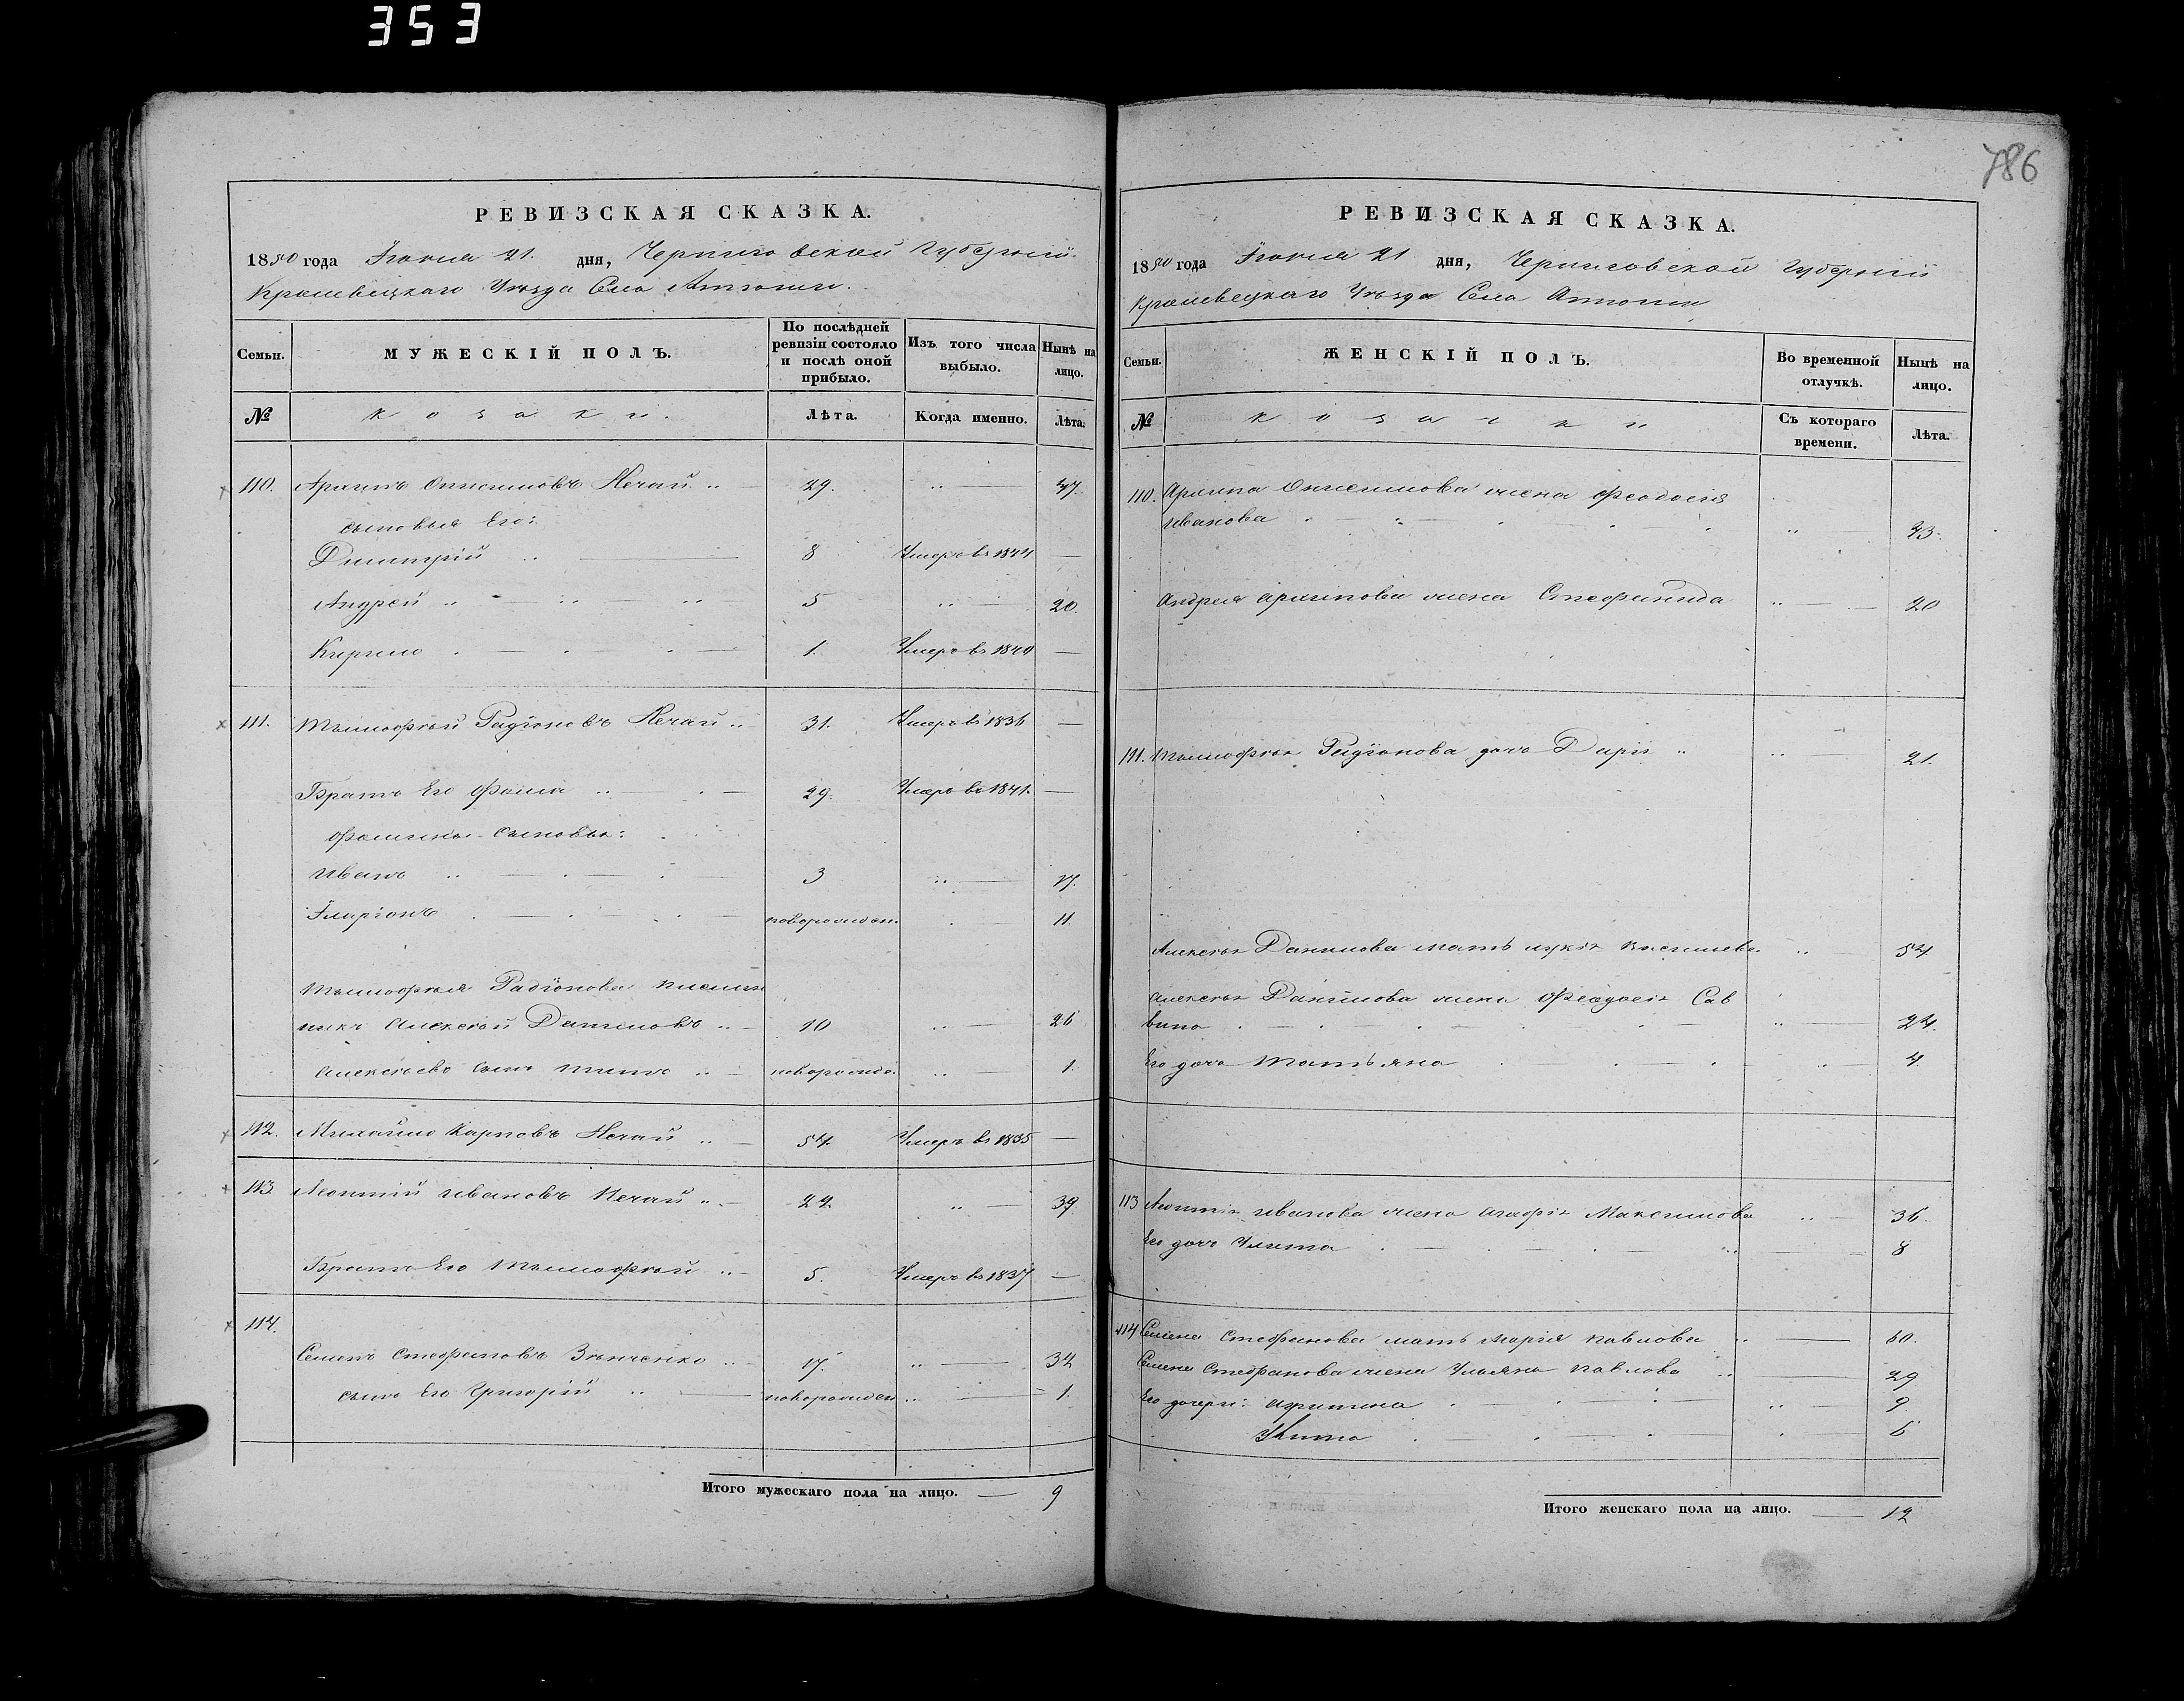 353
786
РЕВИЗСКАЯ СКАЗКА.
1850 года Іюня 21. дня, Черниговской Губерніи
Кролевецкаго Уезда Села
Семьи.
МУЖЕСКІЙ ПОЛЪ.
По послѣдней ревизіи состояло и послѣ оной прибыло.
Изъ того числа выбыло.
Нынѣ на лицо.
№ козаки. Лѣта. Когда именно. Лѣта.
110. Архипъ Онисимовъ Нечай 29. 47.
сыновья Его:
Димитрій 8 Умеръ въ 1844
Андрей 5 20.
Кирило 1. Умеръ въ 1840
111. Тимофѣй Радіоновъ Нечай 31. Умеръ въ 1836
Братъ Его Фома 29. Умеръ въ 1841.
Фомины сыновья:
Иванъ 3 17.
Іларіонъ новорожден. 11.
Тимофѣя Радіонова племян
никъ Алексѣй Даниловъ 10 26
Алексѣевъ сынъ Титъ новорожд. 1.
112. Михайло Карповъ Нечай 54. Умеръ въ 1835
113. Леонтій Ивановъ Нечай 22 39
Братъ Его Тимофѣй 5. Умеръ въ 1837
114.
Семенъ Стефановъ Зѣнченко 17. 32
сынъ Его Григорій новорожден 1.
Итого мужескаго пола на лицо. 9
РЕВИЗСКАЯ СКАЗКА.
1850 года Іюня 21 дня, Черниговской Губерніи
Кролевецкаго Уезда Села
Семьи.
ЖЕНСКІЙ ПОЛЪ.
Во временной отлучкѣ.
Нынѣ на лицо.
№ козачки Съ котораго времени. Лѣта.
110. Архипа Онисимова жена Феодосія
Иванова 43.
Андрея Архипова жена Стефанида 20
111. Тимофѣя Радіонова дочь Дарія 21.
Алексѣя Данилова мать 54
Алексѣя Данилова жена Феодосія Сав
вина 24.
Его дочь Татьяна 4.
113 Леонтія Иванова жена Агафія Максимова 36.
Его дочь Улита 8
114 Семена Стефанова мать Марія Павлова 60.
Семена Стефанова жена Ульяна Павлова 29
Его дочери: 9.
6
Итого женскаго пола на лицо. 12